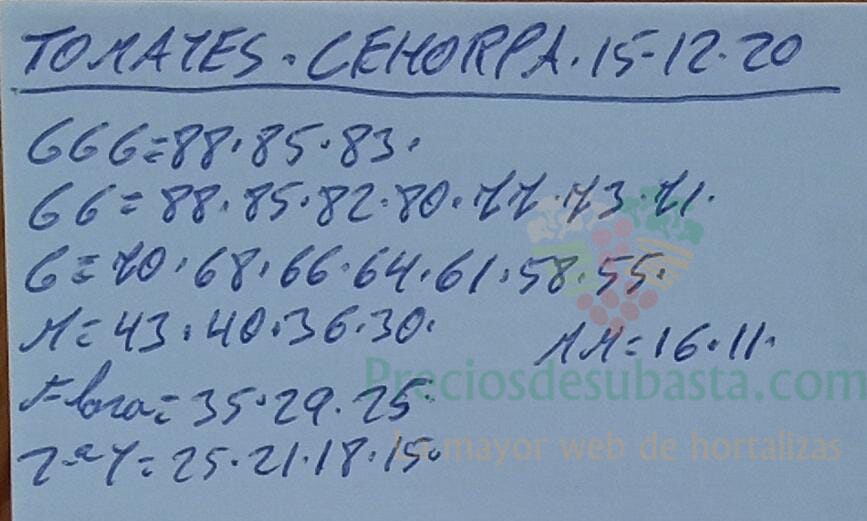 TOMATES. CEHORPA. 15-12-20
GGG=88.85.83.
GG=88.85.82.80.77.73.71.
G=70.68.66.64.61.58.55.
M=43.40.36.30.
MM=16.11.
Flora=35.29.25.
2-ª Y=25.21.18.15.
Preciosdesubasta.com
La mayor web de hortalizas